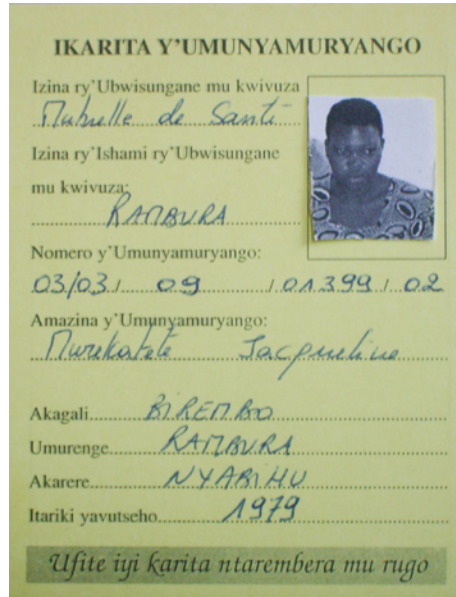 IKARITA Y'UMUNYAMURYANGO
Izina ry'Ubwisungane mu kwivuza
Mutuelle de Santé
Izina ry'Ishami ry'Ubwisungane
mu kwivuza:
RAMBURA
Nomero y'Umunyamuryango:
03/03 / 09 / 01399 / 02
Amazina y'Umunyamuryango:
Murekatete Jacqueline
Akagali BIREMBO
Umurenge RAMBURA
Akarere NYABIHU
Itariki yavutseho 1979
Ufite iyi karita ntarembera mu rugo